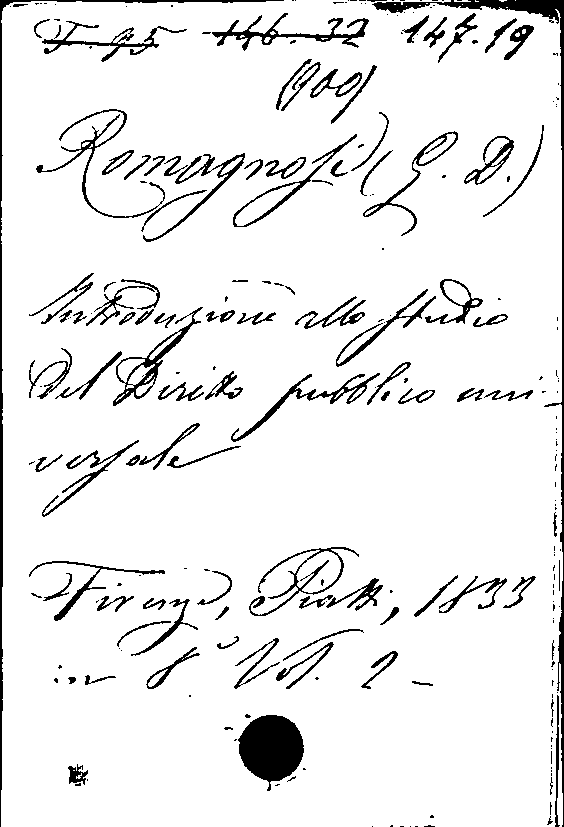 T. 95 146. 32 147.19
(900)
Romagnosi (G. D.)
Introduzione allo studio
del Diritto pubblico uni-
versale
Firenze, Piatti, 1833
in 8° Vol. 2 -